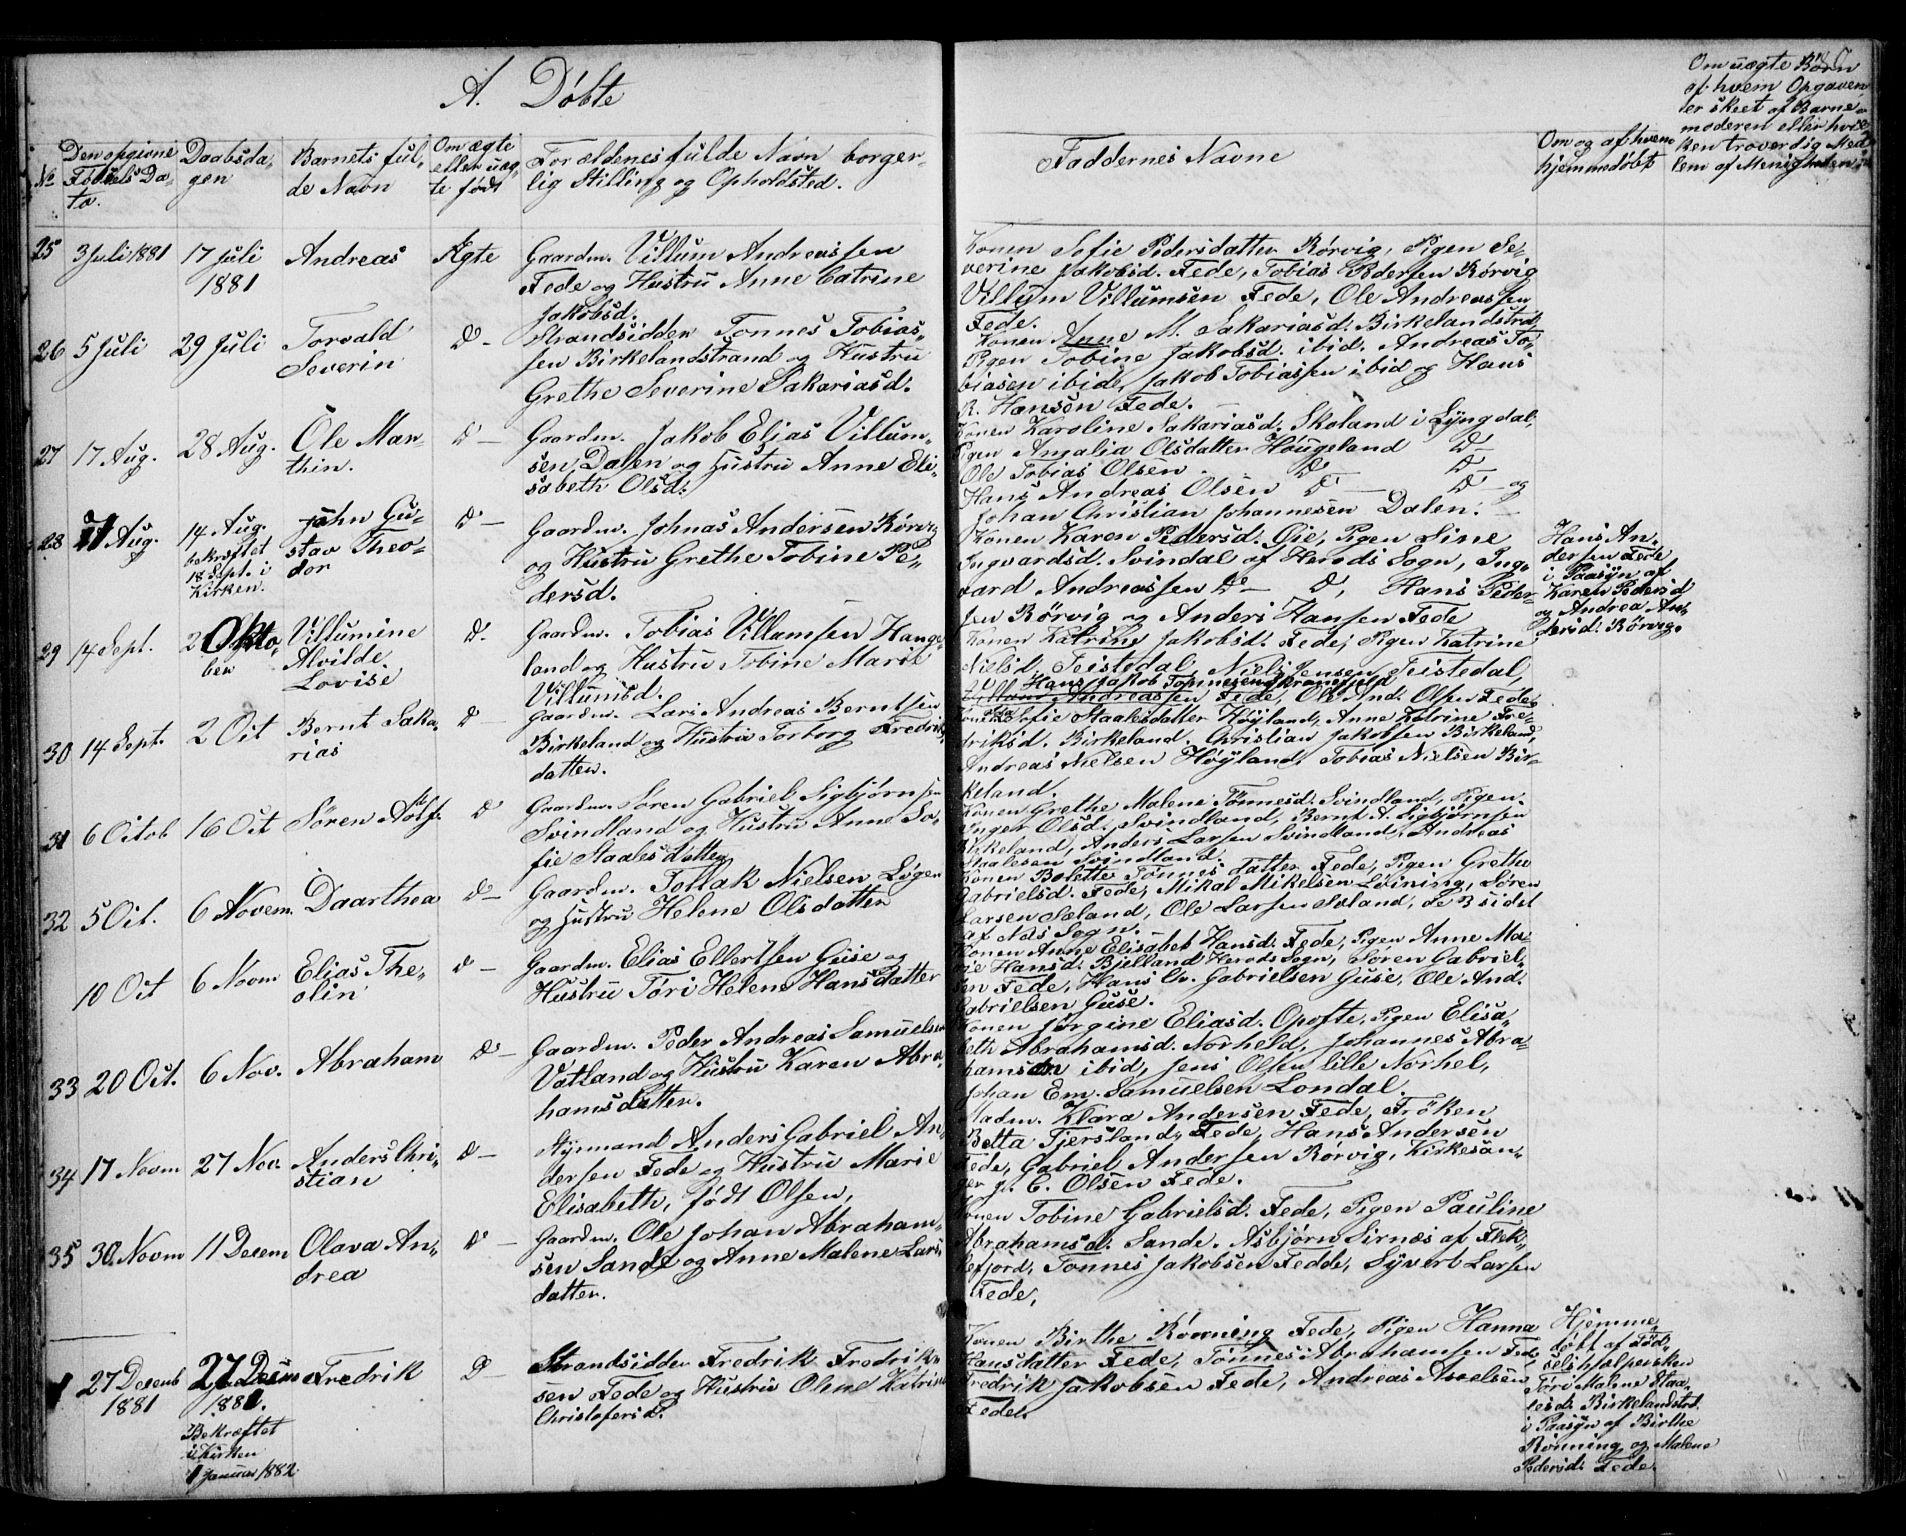 A. Döbte
No
Den opgivne
Födsels Da-
to.
Daabsda-
gen
Barnets ful-
de Navn
Om ægte
eller uæg-
te født
Forældenes fulde Navn borger-
lig Stilling og Opholdsted.
Faddernes Navne
Om og af hvem
hjemmedöbt
Om uægte Børn
af hvem Opgaven
er skeet af Barne-
moderen eller hvil-
ken troverdig Med-
lem af Menigheten
25 3 Juli 1881
17 Juli
1881
Andreas
Ægte
Gaardm. Villum Andreassen
Fede og Hustru Anne Catrine
Jakobsd.
Konen Sofie Pedersdatter Rörvig, Pigen Se-
verine Jakobsd. Fede, Tobias Pedersen Rörvig
Villum Villumsen Fede, Ole Andreassen
Fede.
26 5 Juli
29 Juli
Torvald
Severin
D-
Strandsidder Tonnes Tobias-
sen Birkelandstrand og Hustru
Grethe Severine Sakariasd.
Konen Anne M. Sakariasd. Birkelandstrd.
Pigen Tobine Jakobsd. ibid. Andreas To-
biasen ibide, Jakob Tobiassen ibid og Hans
R. Hansen Fede.
27 17 Aug.
28 Aug.
Ole Mar-
thin.
D-
Gaardm. Jakob Elias Villum-
sen, Dalen og Hustru Anne Eli-
sabeth Olsd.
Konen Karoline Sakariasd. Skoland i Lyngdal,
Pigen Amalia Olsdatter Hougeland D-
Ole Tobias Olsen D- D-
Hans Andreas Olsen D- D- og
Johan Christian Johannesen Dalen.
28 Aug.
14 Aug.
bekræftet
18 Sept. i
Kirken.
John Gu-
stav Theo-
dor
D-
Gaardm. Johnas Andersen Rörvig
og Hustru Grethe Tobine Pe-
dersd.
Konen Karen Pedersd. Öie, Pigen Sine
Ingvardsd. Svindal af Herods Sogn, Ing-
vard Andreassen D- D, Hans Peder-
sen Rörvig og Anders Hansen Fede
Hans An-
dersen Fede
i Paasyn af
Karen Pedersd
og Andrea And.
sersd. Rörvig.
29 14 Sept.
2 Okto-
ber
Villumine
Alvilde
Lovise
D.
Gaardm. Tobias Villumsen Hauge-
land og Hustru Tobine Marie
Villumsd.
Konen Katrine Jakobsd. Fede, Pigen Katrine
Nielsd. Feistedal, Niels Jensen Feistedal,
Hans Jakob Tonnesen
Andreassen Fede Ole And. Olsen Fede
30 14 Sept.
2 Oct
Bernt Saka-
rias
D-
Gaardm. Lars Andreas Berntsen
Birkeland og Hustru Torborg Fredriks-
datter.
Konen Sofie Staalesdatter Höyland, Anne Katrine Fre-
driksd. Birkeland. Christian Jakobsen Birkeland,
Andreas Nielsen Höyland, Tobias Nielsen Bir-
keland.
31 6 Octob
16 Oct
Sören Adolf
D
Gaardm. Sören Gabriel Sigbjörnsen
Svindland og Hustru Anne So-
fie Staalesdatter
Konen Grethe Malene Tönnesd. Svindland, Pigen
Inger Olsd. Svindland, Bernt A. Sigbjörnsen
Birkeland, Anders Larsen Svindland, Andreas
Staalesen Svindland.
32 5 Oct.
6 Novem.
Daarthea
D-
Gaardm. Tollak Nielsen Lögen
og Hustru Helene Olsdatter
Konen Bolette Tönnesdatter Fede, Pigen Grethe
Gabrielsd. Fede, Mikal Mikelsen Löining, Sören
Larsen Sæland, Ole Larsen Sæland, de 3 sidst
af Næs Sogn.
10 Oct
6 Novm
Elias The-
olin
D-
Gaardm. Elias Ellertsen Guse og
Hustru Tori Helene Hansdatter
Konen Anne Elisabet Hansd. Fede, Pigen Anne Ma-
rie Hansd. Bjelland Herods Sogn, Sören Gabriel-
sen Fede, Hans Chr. Gabrielsen Guse, Ole And.
Gabrielsen Guse.
33 20 Oct.
6 Nov.
Abraham
D-
Gaardm. Peder Andreas Samuelsen
Vatland og Hustru Karen Abra-
hamsdatter.
Konen Jörgine Eliasd. Opofte, Pigen Elisa-
beth Abrahamsd. Norheld, Johannes Abra-
hamsen ibid, Jens Olsen lille Norhel,
Johan Em. Samuelsen Londal.
34 17 Novm
27 Nov.
Anders Chri-
stian
D-
Styrmand Anders Gabriel An-
dersen Fede og Hustru Marie
Elisabeth, født Olsen,
Madm. Klara Andersen Fede, Fröken
Betta Tjersland, Fede, Hans Andersen
Fede, Gabriel Andersen Rörvig, Kirkesan-
ger J. C. Olsen Fede.
35 30. Novm
11 Desem
Olava An-
drea
D-
Gaardm. Ole Johan Abraham-
sen Sande og Anne Malene Lars-
datter.
Konen Tobine Gabrielsd. Fede, Pigen Pauline
Abrahamsd. Sande. Asbjörn Sirnæs af Flek-
kefjord, Tonnes Jakobsen Fedde, Syvert Larsen
Fede,
27 Desemb
1881
27 Desm
1881.
Bekræftet
i Kirken
1 Januar 1882
Fredrik
D
Strandsidder Fredrik Fredrik-
sen Fede og Hustru Oline Katrine
Christofersd.
Konen Birthe Rönning Fede, Pigen Hanna
Hansdatter Fede, Tönnes Abrahamsen Fede
Fredrik Jakobsen Fede, Andreas Axelsen
Fede.
Hjemme
döbt af Föd-
selshjælpersken
Tori Malene Staa-
lesd. Birkelandstrd.
i Paasyn af Birthe
Rönning og Malene
Pedersd. Fede.